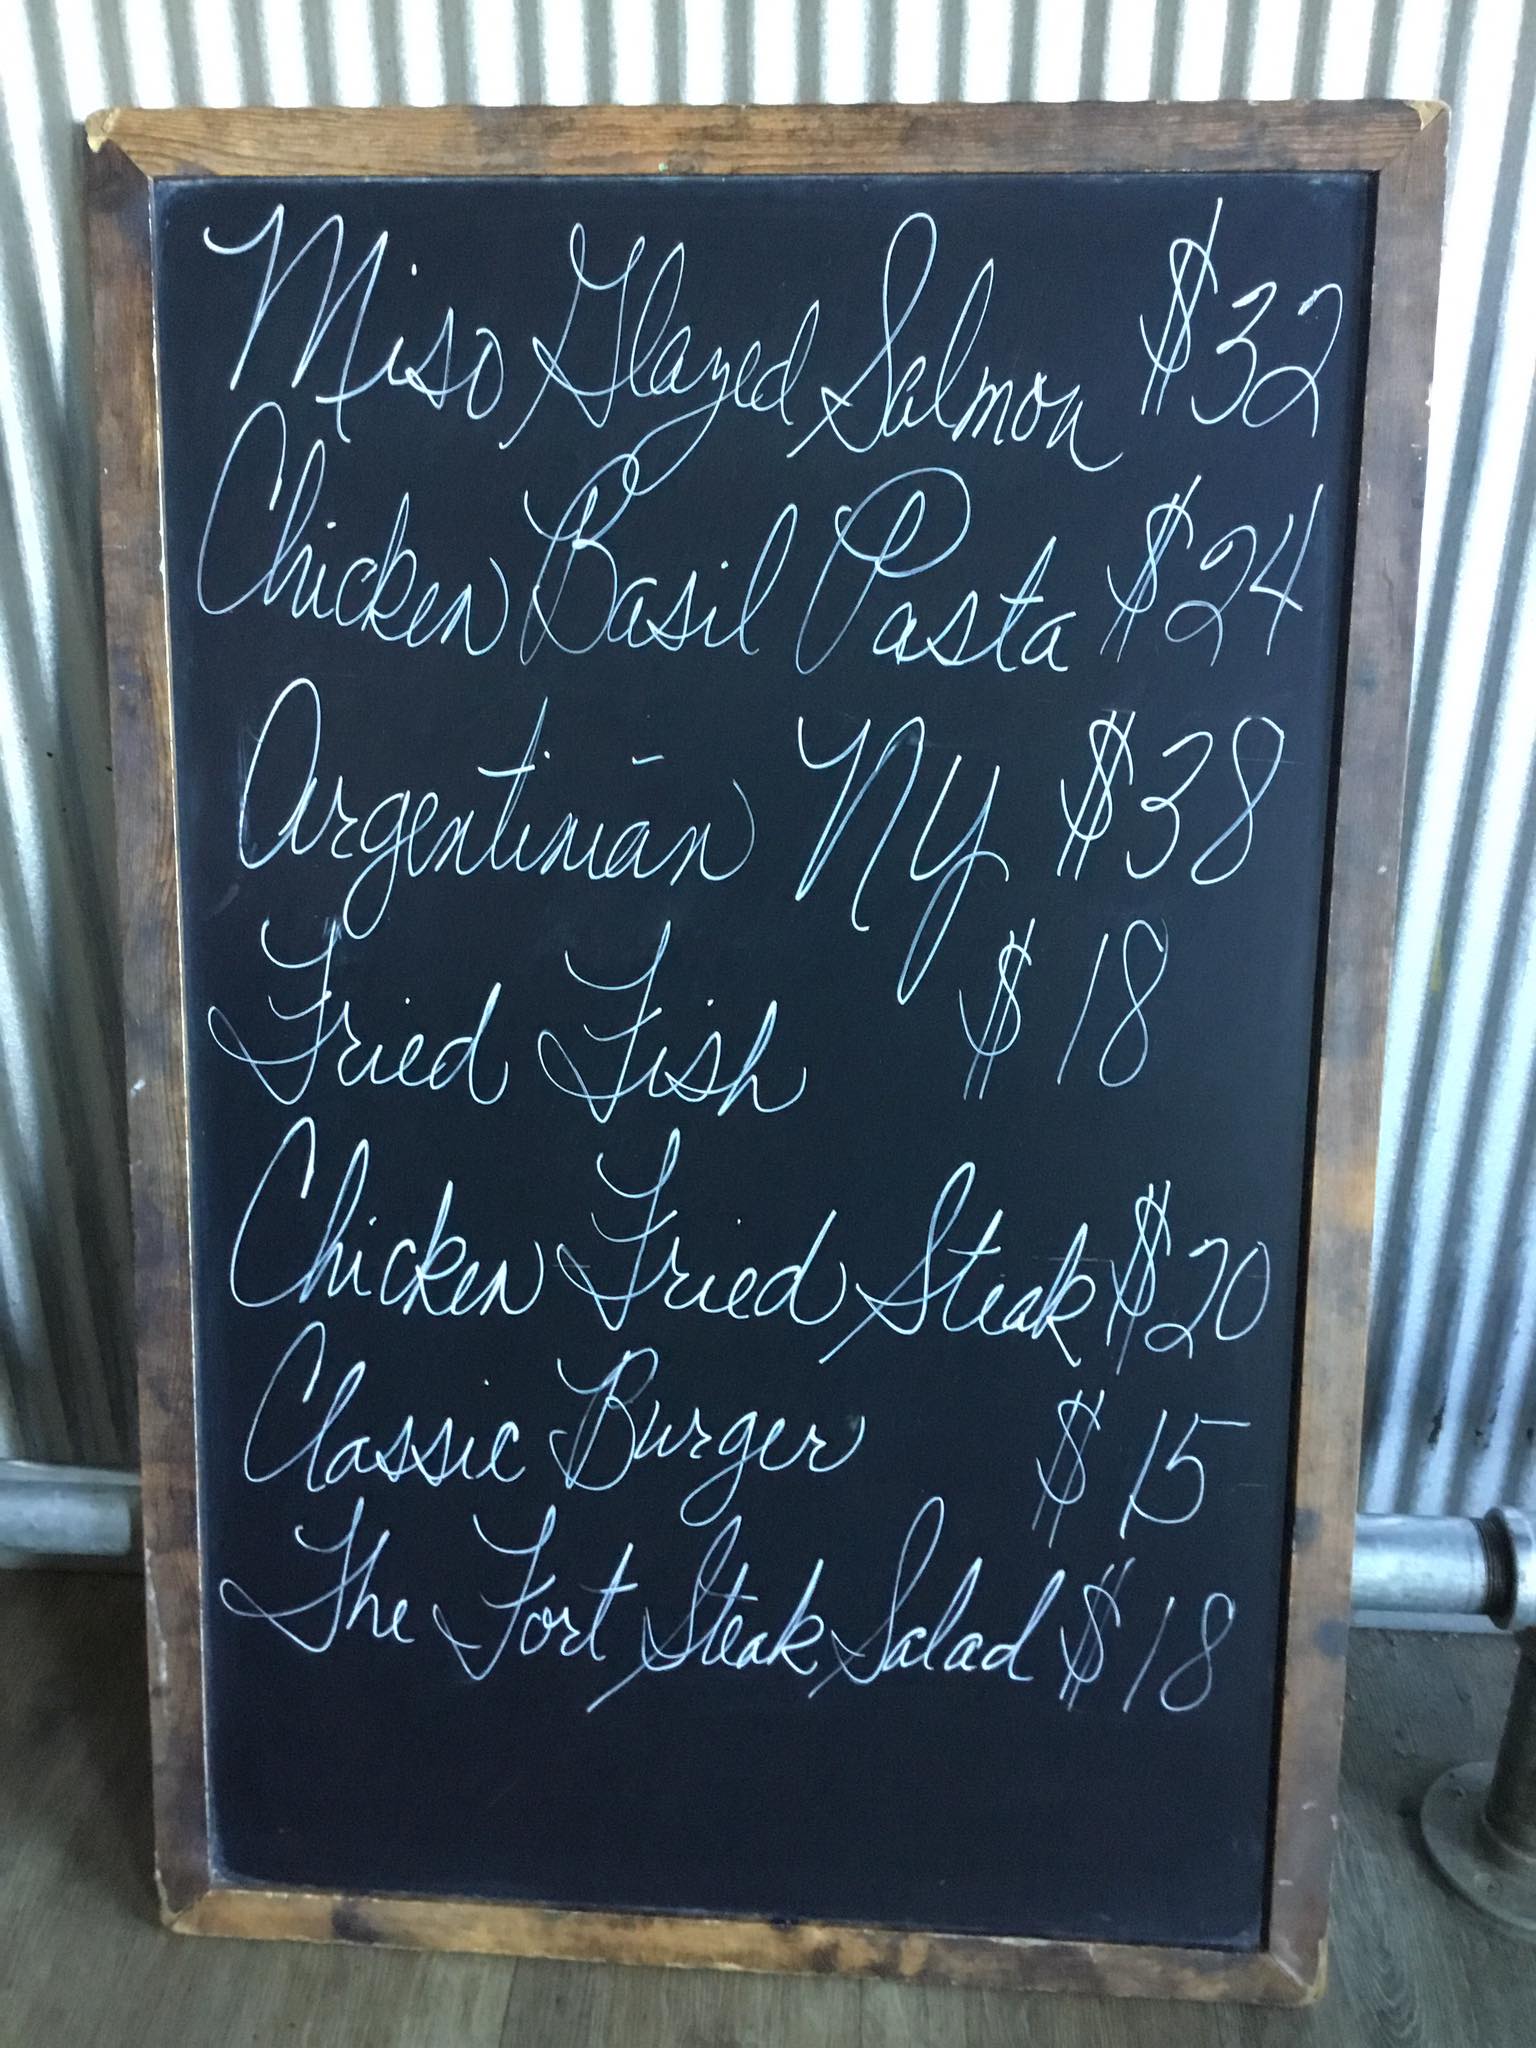 Miso Glazed Salmon $32
Chicken Basil Pasta $24
Argentinian NY $38
Fried Fish $18
Chicken Fried Steak $20
Classic Burger $15
The Fort Steak Salad $18